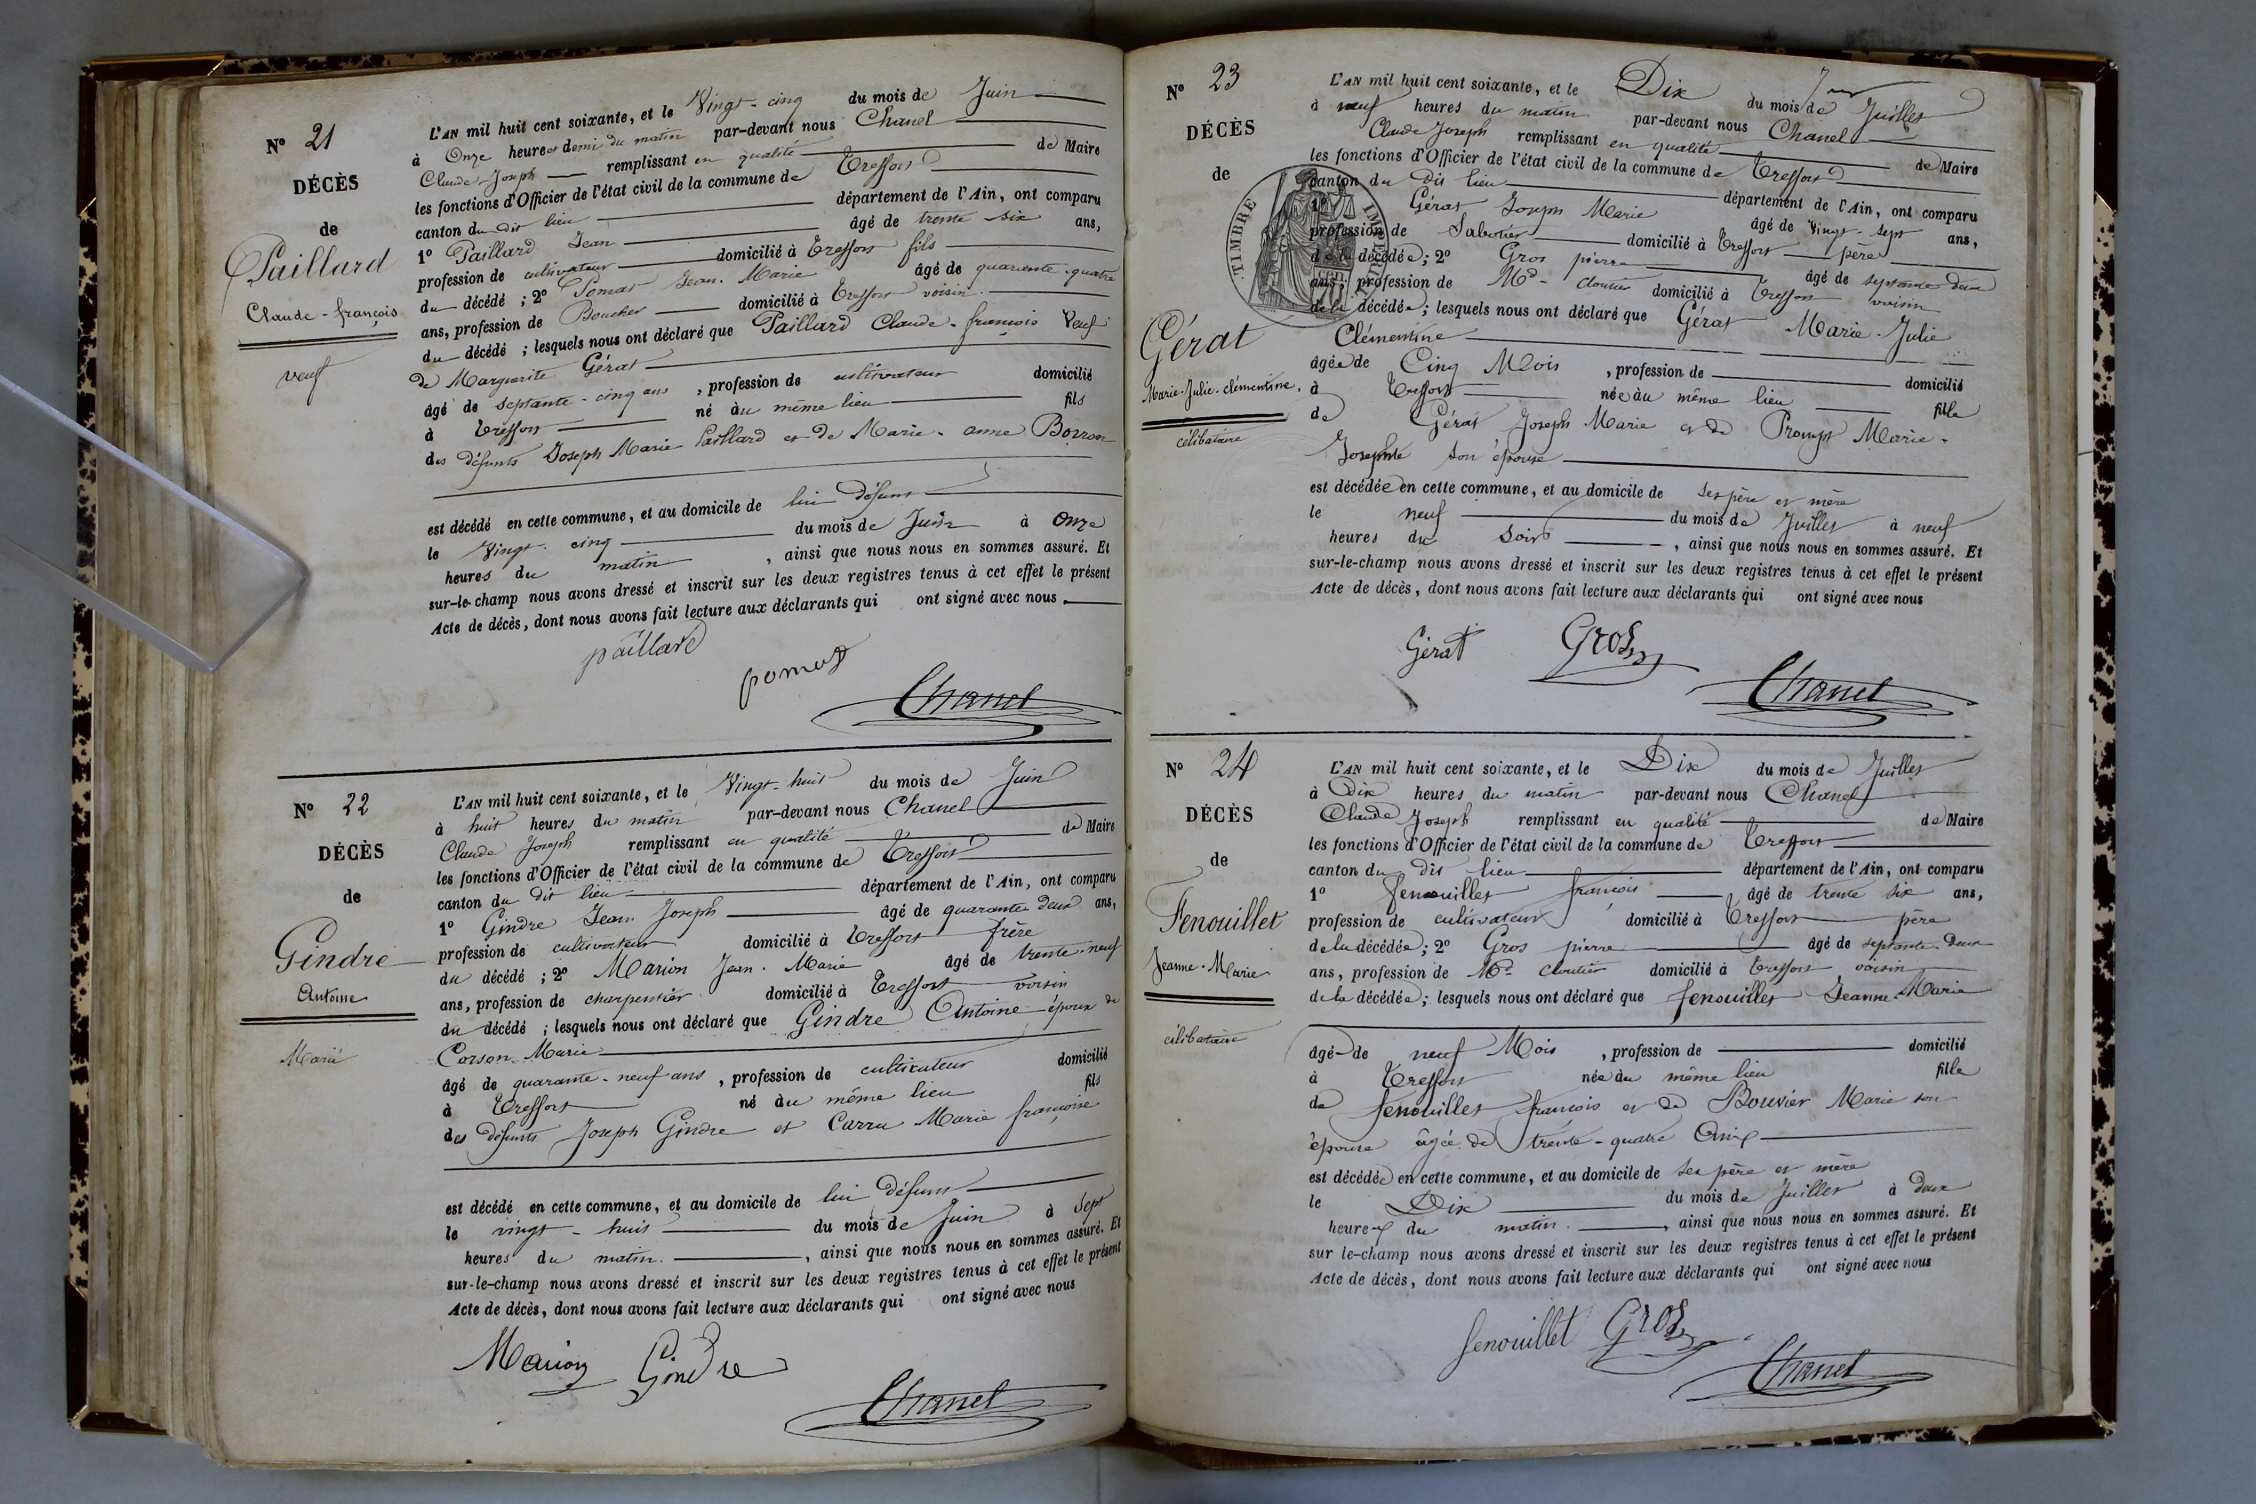 N° 21
DÉCÈS
de
Paillard
Claude-françois
veuf
L'AN mil huit cent soixante, et le Vingt-cinq du mois de Juin
à Onze heures demi du matin par-devant nous Chanel
Claude-Joseph remplissant en qualité de Maire
les fonctions d'Officier de l'état civil de la commune de Treffort
canton du dit lieu département de l'Ain, ont comparu
1° Paillard Jean âgé de trente six ans,
profession de cultivateur domicilié à Treffort fils
du décédé ; 2° Pomat Jean-Marie âgé de quarante-quatre
ans, profession de Boucher domicilié à Treffort voisin
du décédé ; lesquels nous ont déclaré que Paillard Claude-francois Veuf
de Marguerite Gérat
âgé de septante-cinq ans , profession de cultivateur domicilié
à Treffort né au même lieu fils
des défunts Joseph Marie Paillard et de Marie-anne Borron
est décédé en cette commune, et au domicile de lui défunt
le Vingt-cinq du mois de Juin à Onze
heures du matin , ainsi que nous nous en sommes assuré. Et
sur-le-champ nous avons dressé et inscrit sur les deux registres tenus à cet effet le présent
Acte de décès, dont nous avons fait lecture aux déclarants qui ont signé avec nous.
paillard
pomat
Chanel
N° 22
DÉCÈS
de
Gindre
Antoine
Marié
L'AN mil huit cent soixante, et le Vingt-huit du mois de Juin
à huit heures du matin par-devant nous Chanel
Claude Joseph remplissant en qualité de Maire
les fonctions d'Officier de l'état civil de la commune de Treffort
canton du dit lieu département de l'Ain, ont comparu
1° Gindre Jean Joseph âgé de quarante deux ans,
profession de cultivateur domicilié à Treffort frère
du décédé ; 2° Marion Jean-Marie âgé de trente-neuf
ans, profession de charpentier domicilié à Treffort voisin
du décédé ; lesquels nous ont déclaré que Gindre Antoine époux de
Corson Marie
âgé de quarante-neuf ans , profession de cultivateur domicilié
à Treffort né au même lieu fils
des défunts Joseph Gindre et Carru Marie françoise
est décédé en cette commune, et au domicile de lui défunt
le vingt-huit du mois de Juin à Sept
heures du matin. , ainsi que nous nous en sommes assuré. Et
sur-le-champ nous avons dressé et inscrit sur les deux registres tenus à cet effet le présent
Acte de décès, dont nous avons fait lecture aux déclarants qui ont signé avec nous
Marion Gindre
Chanel
N° 23
DÉCÈS
de
TIMBRE IMPERIAL
Gérat
Marie-Julie-clémentine.
célibataire
L'AN mil huit cent soixante, et le Dix du mois de Juillet
à neuf heures du matin par-devant nous Chanel
Claude Joseph remplissant en qualité de Maire
les fonctions d'Officier de l'état civil de la commune de Treffort
canton du dit lieu département de l'Ain, ont comparu
1° Gérat Joseph Marie âgé de Vingt-sept ans,
profession de Sabotier domicilié à Treffort père
de la décédée ; 2° Gros pierre âgé de septante deux
ans, profession de Md cloutier domicilié à Treffort voisin
de la décédée ; lesquels nous ont déclaré que Gérat Marie-Julie
Clémentine
âgée de Cinq Mois , profession de domicilié
à Treffort née au même lieu fille
de Gérat Joseph Marie et de Prompt Marie-
Josephte son épouse
est décédée en cette commune, et au domicile de ses père et mère
le neuf du mois de Juillet à neuf
heures du Soir , ainsi que nous nous en sommes assuré. Et
sur-le-champ nous avons dressé et inscrit sur les deux registres tenus à cet effet le présent
Acte de décès, dont nous avons fait lecture aux déclarants qui ont signé avec nous
Gérat Gros
Chanel
N° 24
DÉCÈS
de
Fenouillet
Jeanne-Marie
célibataire
L'AN mil huit cent soixante, et le Dix du mois de Juillet
à Dix heures du matin par-devant nous Chanel
Claude Joseph remplissant en qualité de Maire
les fonctions d'Officier de l'état civil de la commune de Treffort
canton du dit lieu département de l'Ain, ont comparu
1° fenouillet françois âgé de trente six ans,
profession de cultivateur domicilié à Treffort père
de la décédée ; 2° Gros pierre âgé de septante-deux
ans, profession de Md cloutier domicilié à Treffort voisin
de la décédée ; lesquels nous ont déclaré que fenouillet Jeanne-Marie
âgé de neuf Mois , profession de domicilié
à Treffort née au même lieu fille
de fenouillet francois et de Bouvier Marie son
épouse âgée de trente-quatre Ans
est décédée en cette commune, et au domicile de ses père et mère
le Dix du mois de Juillet à deux
heures du matin. , ainsi que nous nous en sommes assuré. Et
sur le-champ nous avons dressé et inscrit sur les deux registres tenus à cet effet le présent
Acte de décès, dont nous avons fait lecture aux déclarants qui ont signé avec nous
fenouillet Gros
Chanel